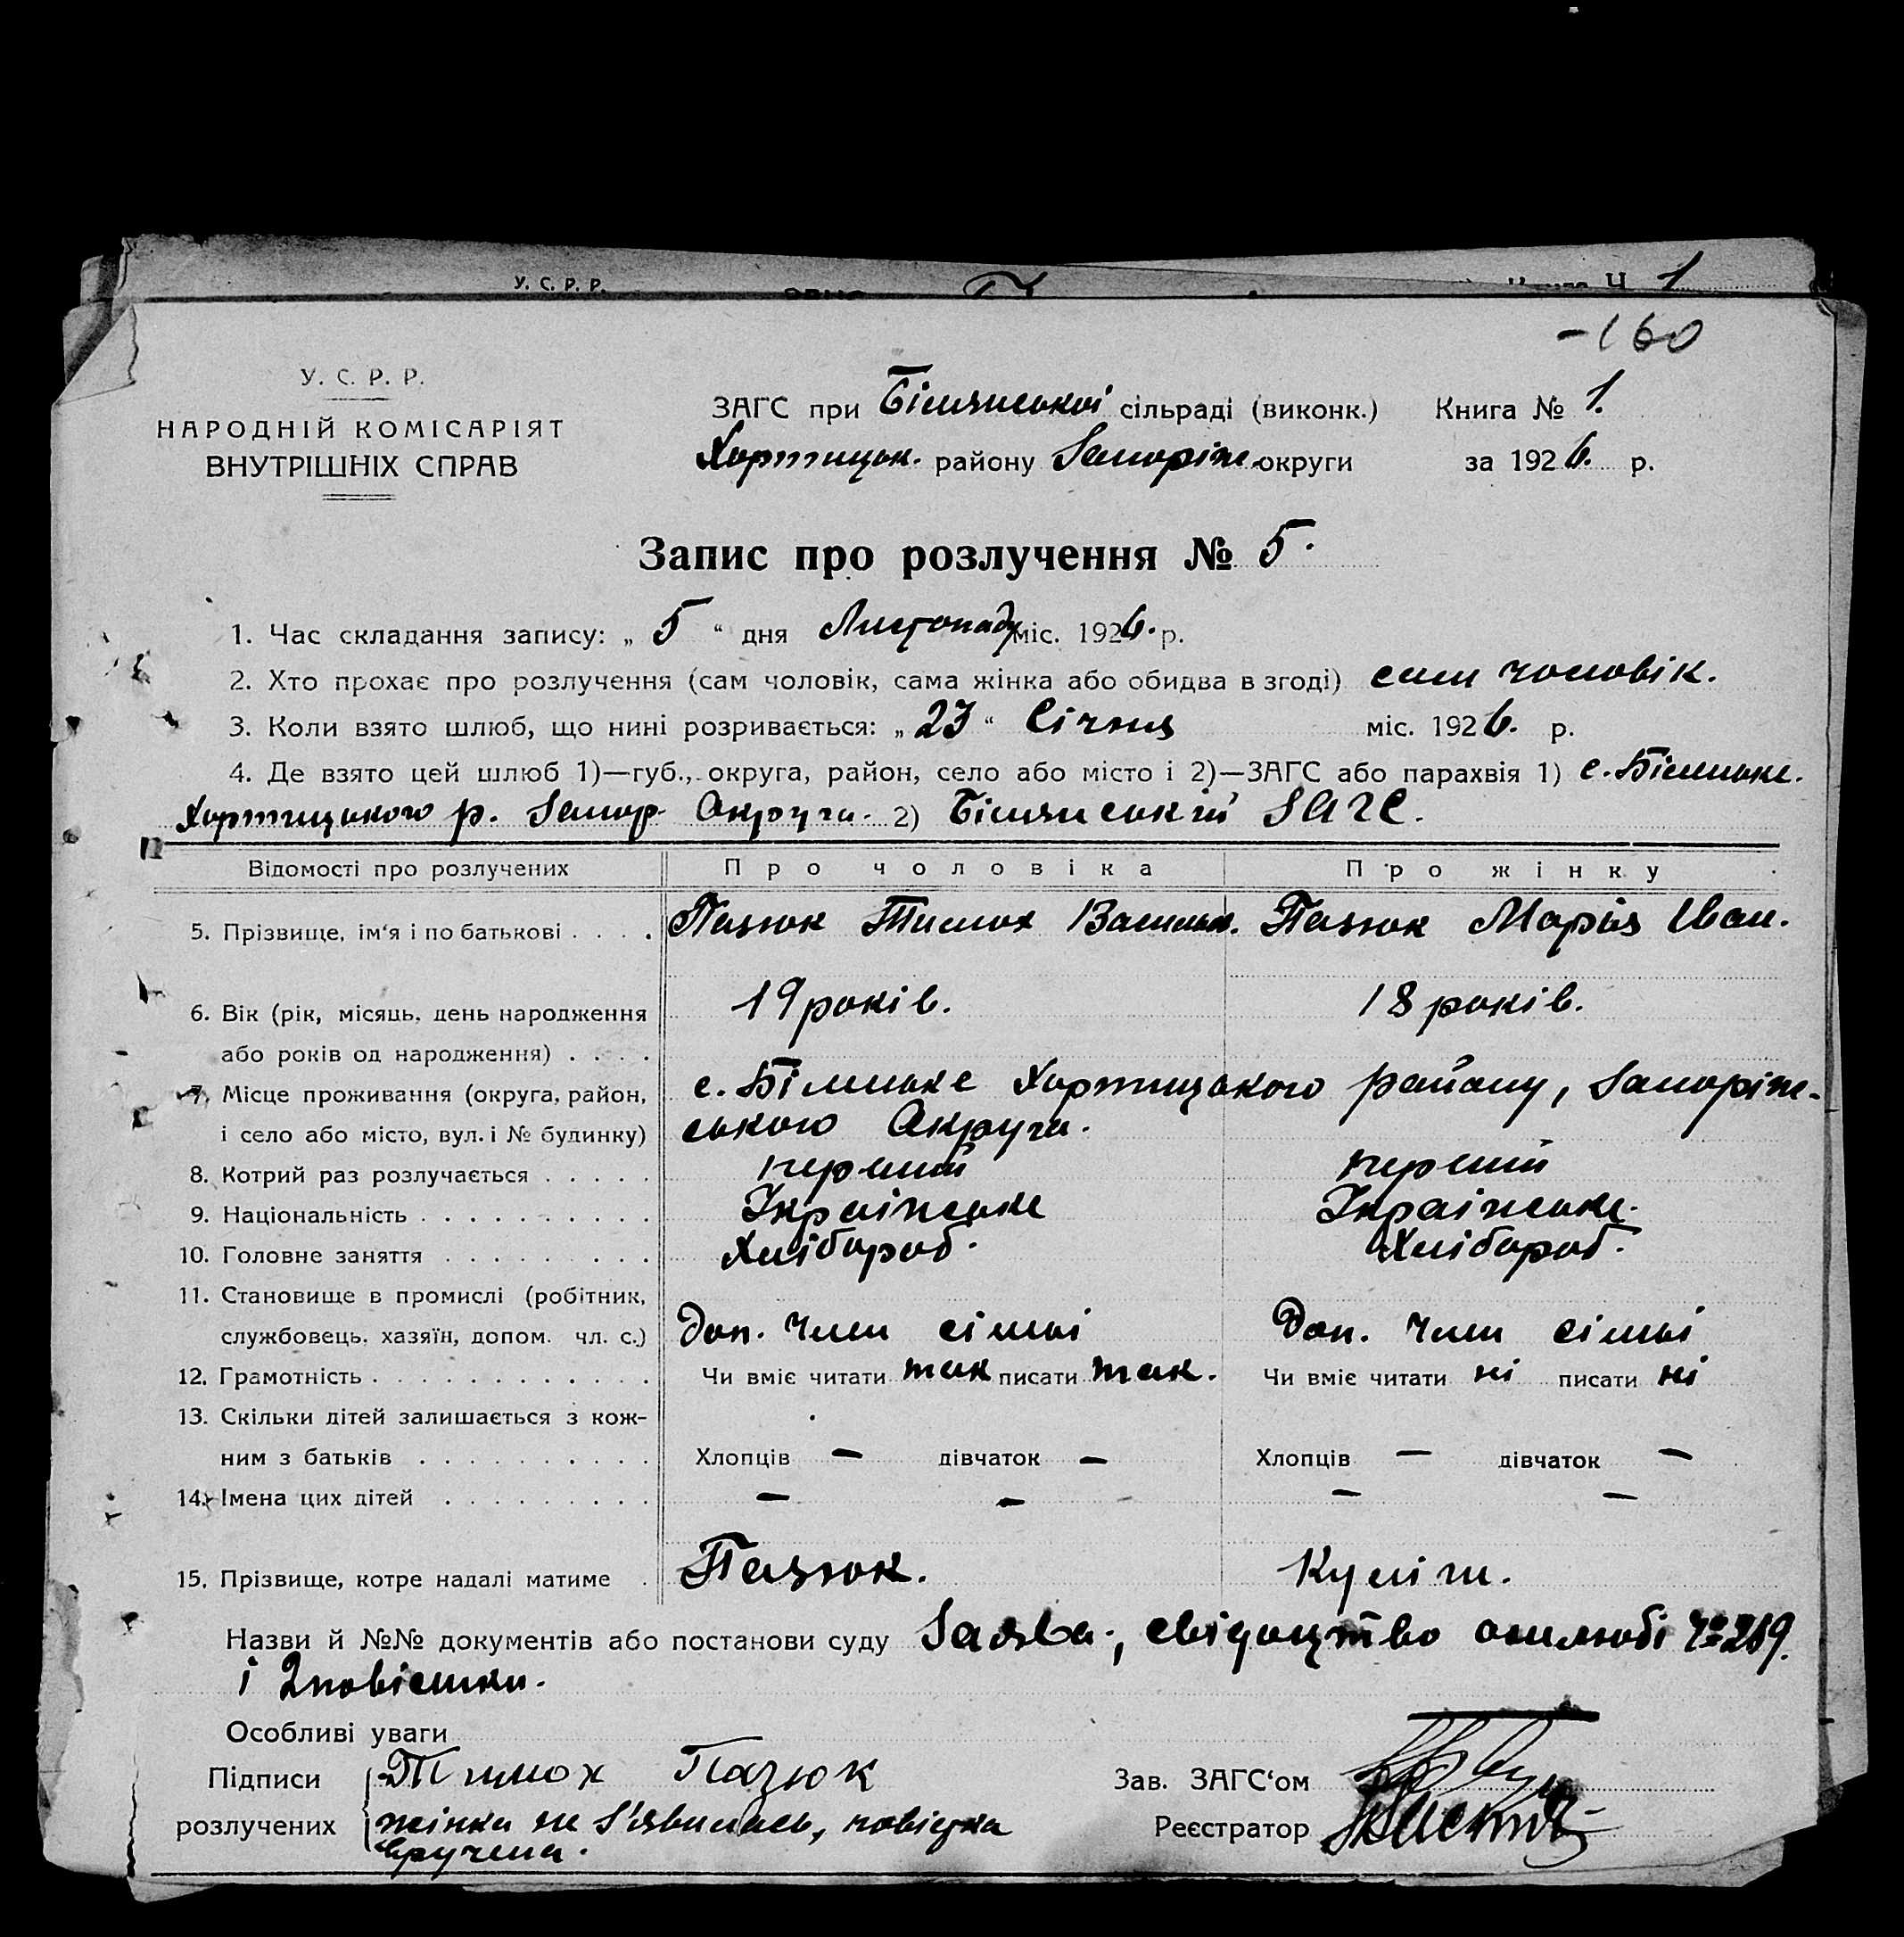 У. С. Р. Р.
1
-160
У. С. Р. Р.
НАРОДНІЙ КОМІСАРІЯТ
ВНУТРІШНІХ СПРАВ
ЗАГС при Біляньскоі сільраді (виконк.) Книга № 1.
Хортицьк. району Запоріж. округи за 1926. р.
Запис про розлучення № 5.
1. Час складання запису: „ 5 “ дня Листопаду міс. 1926. р.
2. Хто прохає про розлучення (сам чоловік, сама жінка або обидва в згоді) сам чоловік.
3. Коли взято шлюб, що нині розривається: „ 23 “ Січня міс. 1926. р.
4. Де взято цей шлюб 1)—губ., округа, район, село або місто і 2)—ЗАГС або парахвія 1) с. Біленьке.
Хортицького р. Запор. Округи. 2) Біляньский ЗАГС.
Відомості про розлучених Про чоловіка Про жінку
5. Прізвище, ім‘я і по батькові . . . . Пазюк Тимох Васильов. Пазюк Марія Іван.
6. Вік (рік, місяць, день народження 19 років. 18 років.
або років од народження) . . . .
7. Місце проживання (округа, район, с. Біленьке Хортицького району, Запоріж-
і село або місто, вул. і № будинку) ського Округи.
8. Котрий раз розлучається . . . . . перший перший
9. Національність . . . . . . . . . . Українське Українське.
10. Головне заняття . . . . . . . . . Хлібороб. Хлібороб.
11. Становище в промислі (робітник,
службовець, хазяїн, допом. чл. с.) Доп. член сімьі Доп. член сімьі
12. Грамотність . . . . . . . . . . . . Чи вміє читати так писати так. Чи вміє читати ні писати ні
13. Скільки дітей залишається з кож-
ним з батьків . . . . . . . . . . Хлопців — дівчаток — Хлопців — дівчаток —
14. Імена цих дітей . . . . . . . . . — — — —
15. Прізвище, котре надалі матиме . Пазюк. Куліш.
Назви й №№ документів або постанови суду Заява, свідоцтво ошлюбі Ч° 269.
і 2 повістки.
Особливі уваги
Підписи Тимох Пазюк Зав. ЗАГС‘ом
розлучених жінка не зʼявилась, повістка Реєстратор
вручена.